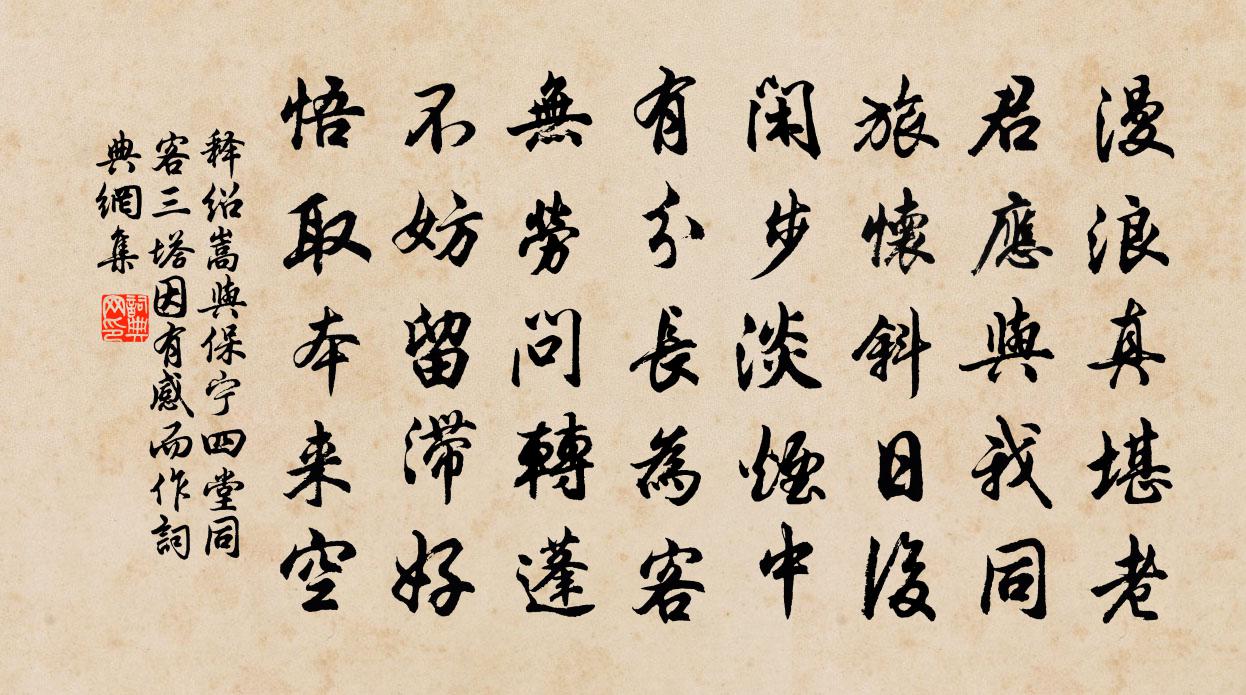 漫浪真堪老
君應與我同
旅懷斜日後
閑步淡煙中
有分長為客
無勞問轉蓬
不妨留滯好
悟取本来空
釋紹嵩與保宁四堂同
客三塔因有感而作詞
典網集
詞典
网印